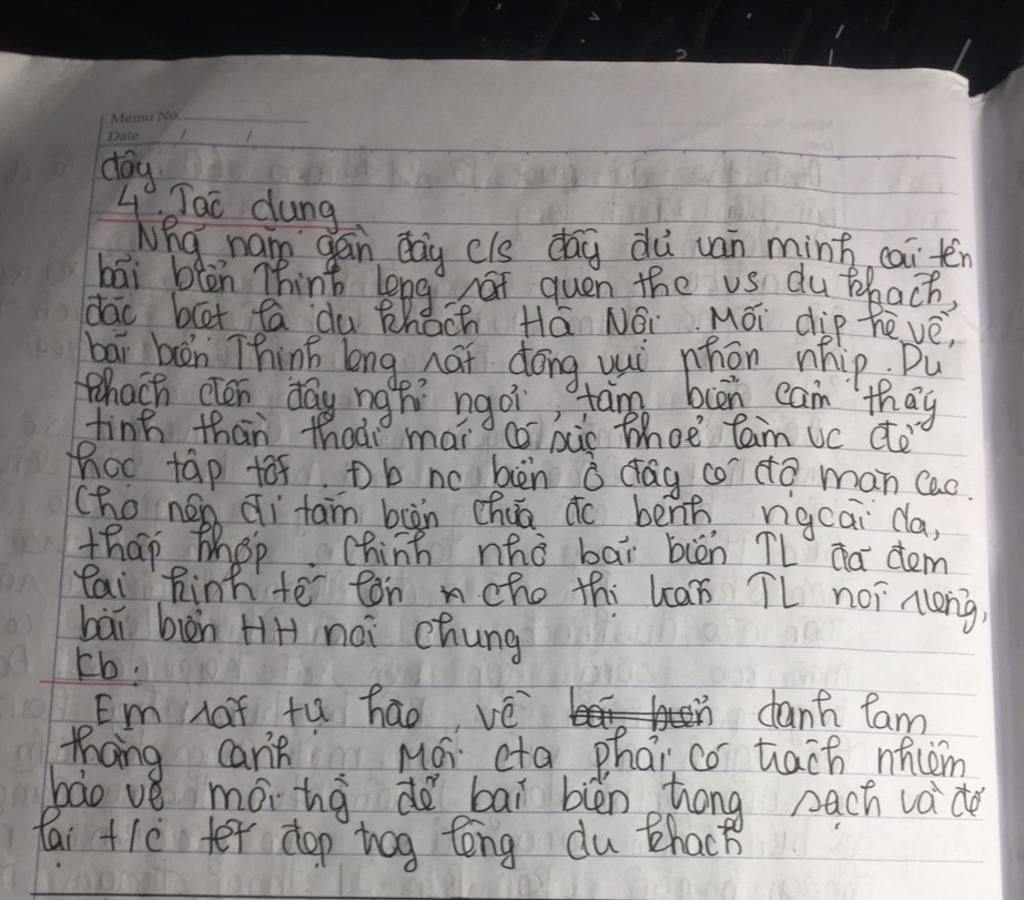 Memo No.
Date / /
đây
4. Tác dụng
Những năm gần đây c/s đầy đủ văn minh cái tên
bãi biển Thịnh Long rất quen the vs du khách,
đặc biệt là du khách Hà Nội. Mỗi dịp hè về,
bãi biển Thịnh long rất đông vui nhộn nhịp. Du
khách đến đây nghỉ ngơi, tắm biển cảm thấy
tinh thần thoải mái có sức khoẻ làm vc để
học tập tốt. Đb nc biển ở đây có độ mặn cao.
Cho nên đi tắm biển chữa đc bệnh ngoài da,
thấp khớp. Chính nhờ bãi biển TL đã đem
lại kinh tế lớn cho thị trấn TL nói riêng,
bãi biển HH nói chung
Kb:
Em rất tự hào về bãi biển danh lam
thắng cảnh Mỗi cta phải có trách nhiệm
bảo vệ môi trg để bãi biển trong sạch và để
lại t/c tốt đẹp trog lòng du khách